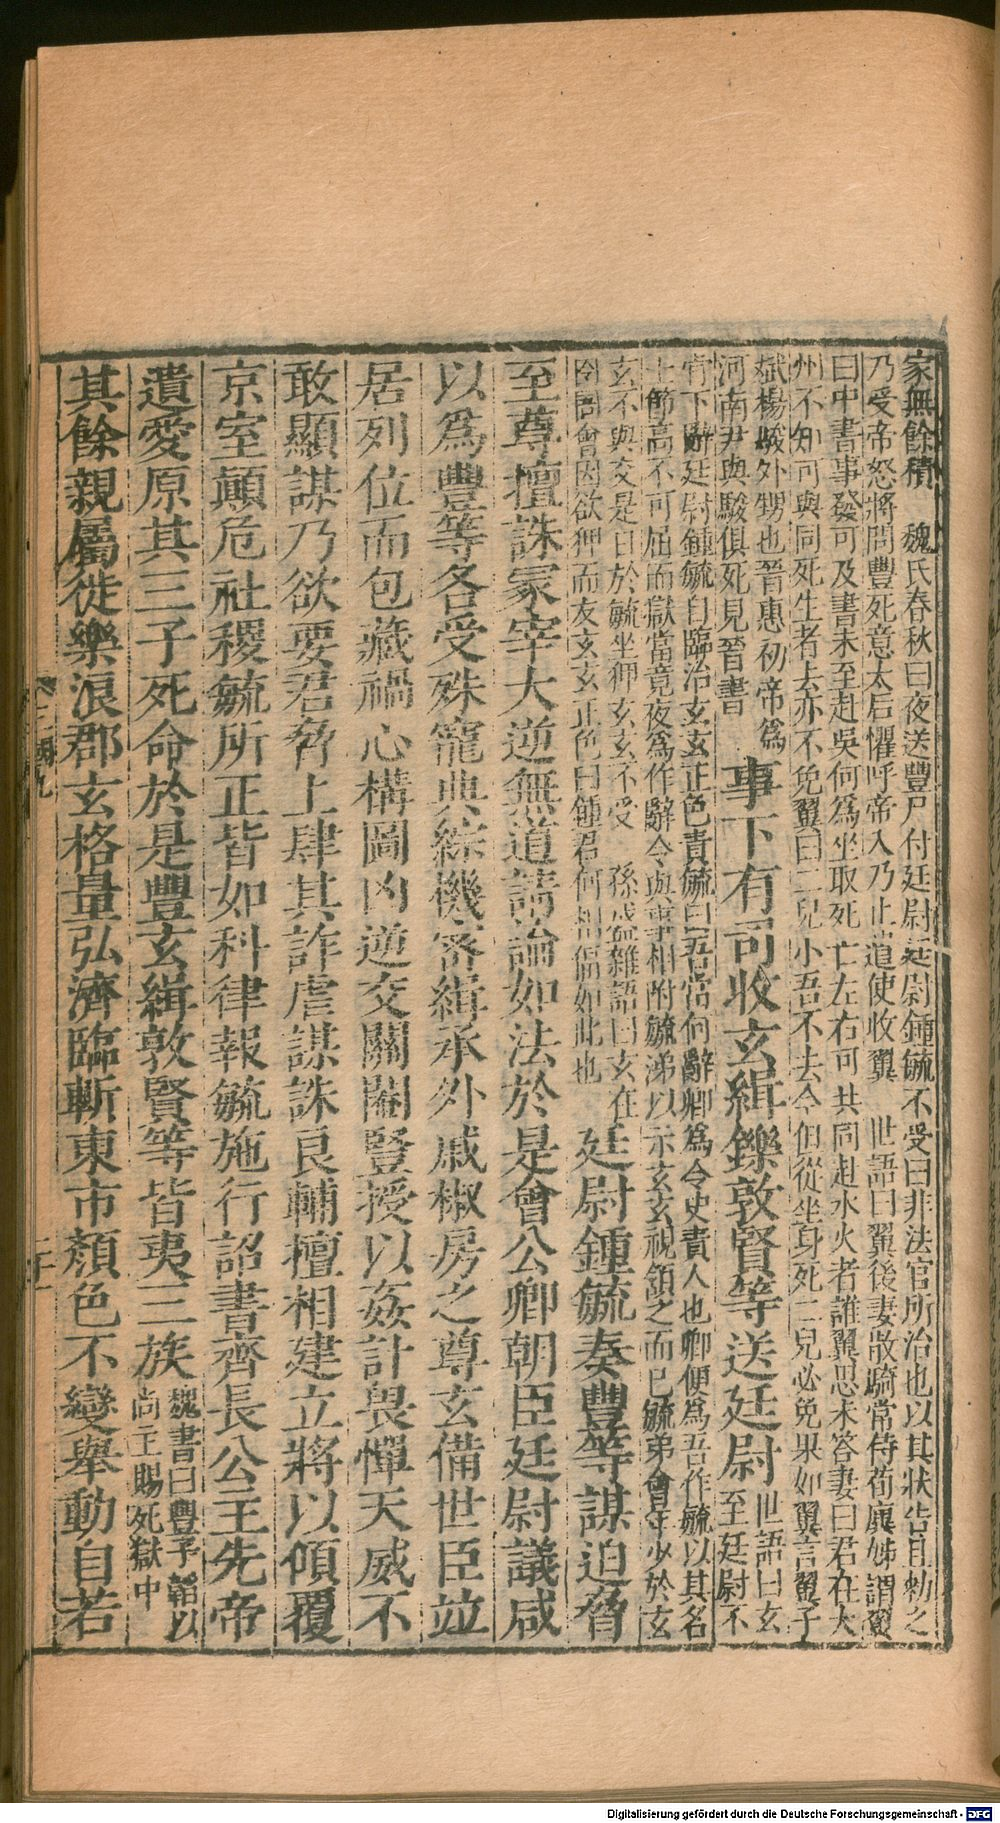 家無餘積　魏氏春秋曰夜送豐尸付廷尉廷尉鍾毓不受曰非法官所治也以其狀告且勅之
乃受帝怒將問豐死意太后懼呼帝入乃止遣使收翼　世語曰翼後妻散騎常侍荀廙姊謂翼
曰中書事發可及書未至赴吳何爲坐取死亡左右可共同赴水火者誰翼思未答妻曰君在大
州不知可與同死生者去亦不免翼曰二兒小吾不去今但從坐身死二兒必免果如翼言翼子
斌楊駿外甥也晉惠初帝爲
河南尹與駿俱死見晉書
事下有司收玄緝鑠敦賢等送廷尉
世語曰玄
至廷尉不
肯下辭廷尉鍾毓自臨治玄玄正色責毓曰吾當何辭卿爲令史責人也卿便爲吾作毓以其名
士節高不可屈而獄當竟夜爲作辭令與事相附毓涕以示玄玄視頷之而已毓弟會年少於玄
玄不與交是日於毓坐狎玄玄不受　孫盛雜語曰玄在
囹圄會因欲狎而友玄玄正色曰鍾君何相偪如此也
廷尉鍾毓奏豐等謀迫脅
至尊擅誅冢宰大逆無道請論如法於是會公卿朝臣廷尉議咸
以爲豐等各受殊寵典綜機密緝承外戚椒房之尊玄備世臣竝
居列位而包藏禍心構圖凶逆交關閹豎授以姦計畏憚天威不
敢顯謀乃欲要君脅上肆其詐虐謀誅良輔擅相建立將以傾覆
京室顛危社稷毓所正皆如科律報毓施行詔書齊長公主先帝
遺愛原其三子死命於是豐玄緝敦賢等皆夷三族
魏書曰豐子韜以
尚主賜死獄中
其餘親屬徙樂浪郡玄格量弘濟臨斬東市顏色不變舉動自若
Digitalisierung gefördert durch die Deutsche Forschungsgemeinschaft - DFG